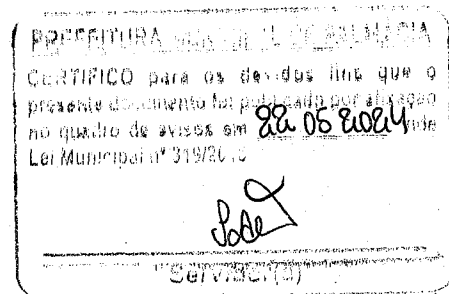 PREFEITURA MUNICIPAL DE PALMÁCIA
CERTIFICO para os devidos fins que o
presente documento foi publicado por afixação
no quadro de avisos em 22 05 2024 vide
Lei Municipal nº 319/20
Servidor(a)